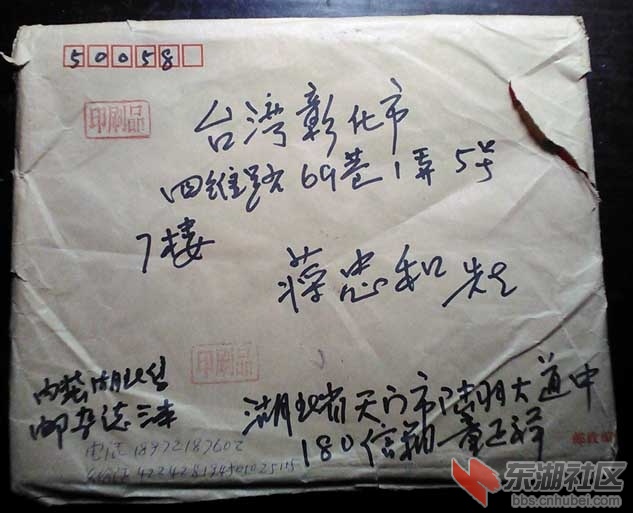 50058
印刷品
台湾彰化市
四维路69巷1弄5号
7楼
蒋忠和先生
印刷品
内装湖北省
邮杂志三本
湖北省天门市陆羽大道中
180信箱
电话 18972187602
东湖社区
bbs.cnhubei.com